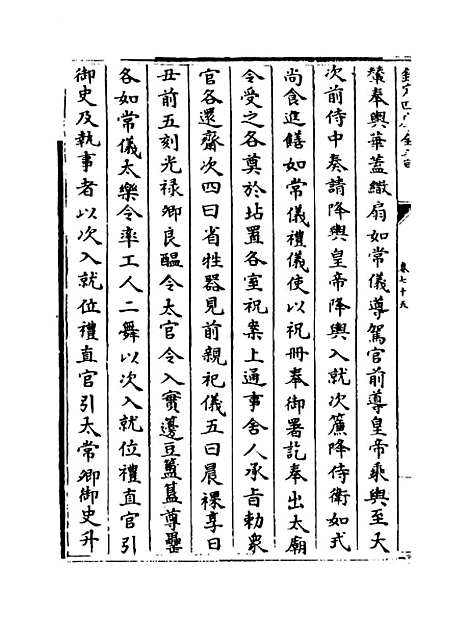 欽定四庫全書
卷七十五
輦奉輿華蓋繖扇如常儀導駕官前導皇帝乘輿至大
次前侍中奏請降輿皇帝降輿入就次簾降侍衛如式
尚食進饍如常儀禮儀使以祝冊奉御署訖奉出太廟
令受之各奠於坫置各室祝案上通事舍人承旨勅衆
官各還齋次四曰省牲器見前親祀儀五曰晨祼享日
丑前五刻光禄卿良醖令太官令入實籩豆簠簋尊罍
各如常儀太樂令率工人二舞以次入就位禮直官引
御史及執事者以次入就位禮直官引太常卿御史升